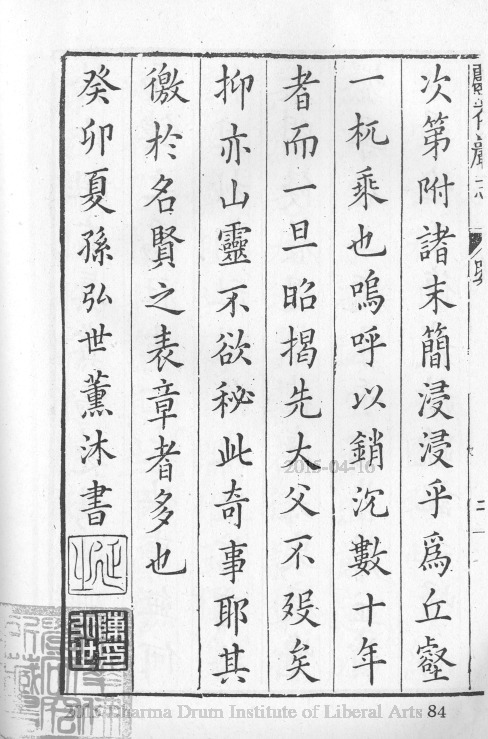 次第附諸末簡浸浸乎爲丘壑
一杌乘也嗚呼以銷沉數十年
者而一旦昭揭先大父不歿矣
抑亦山靈不欲秘此奇事耶其
徼於名賢之表章者多也
癸卯夏孫弘世薰沐書
2015-04-16
Dharma Drum Institute of Liberal Arts 84